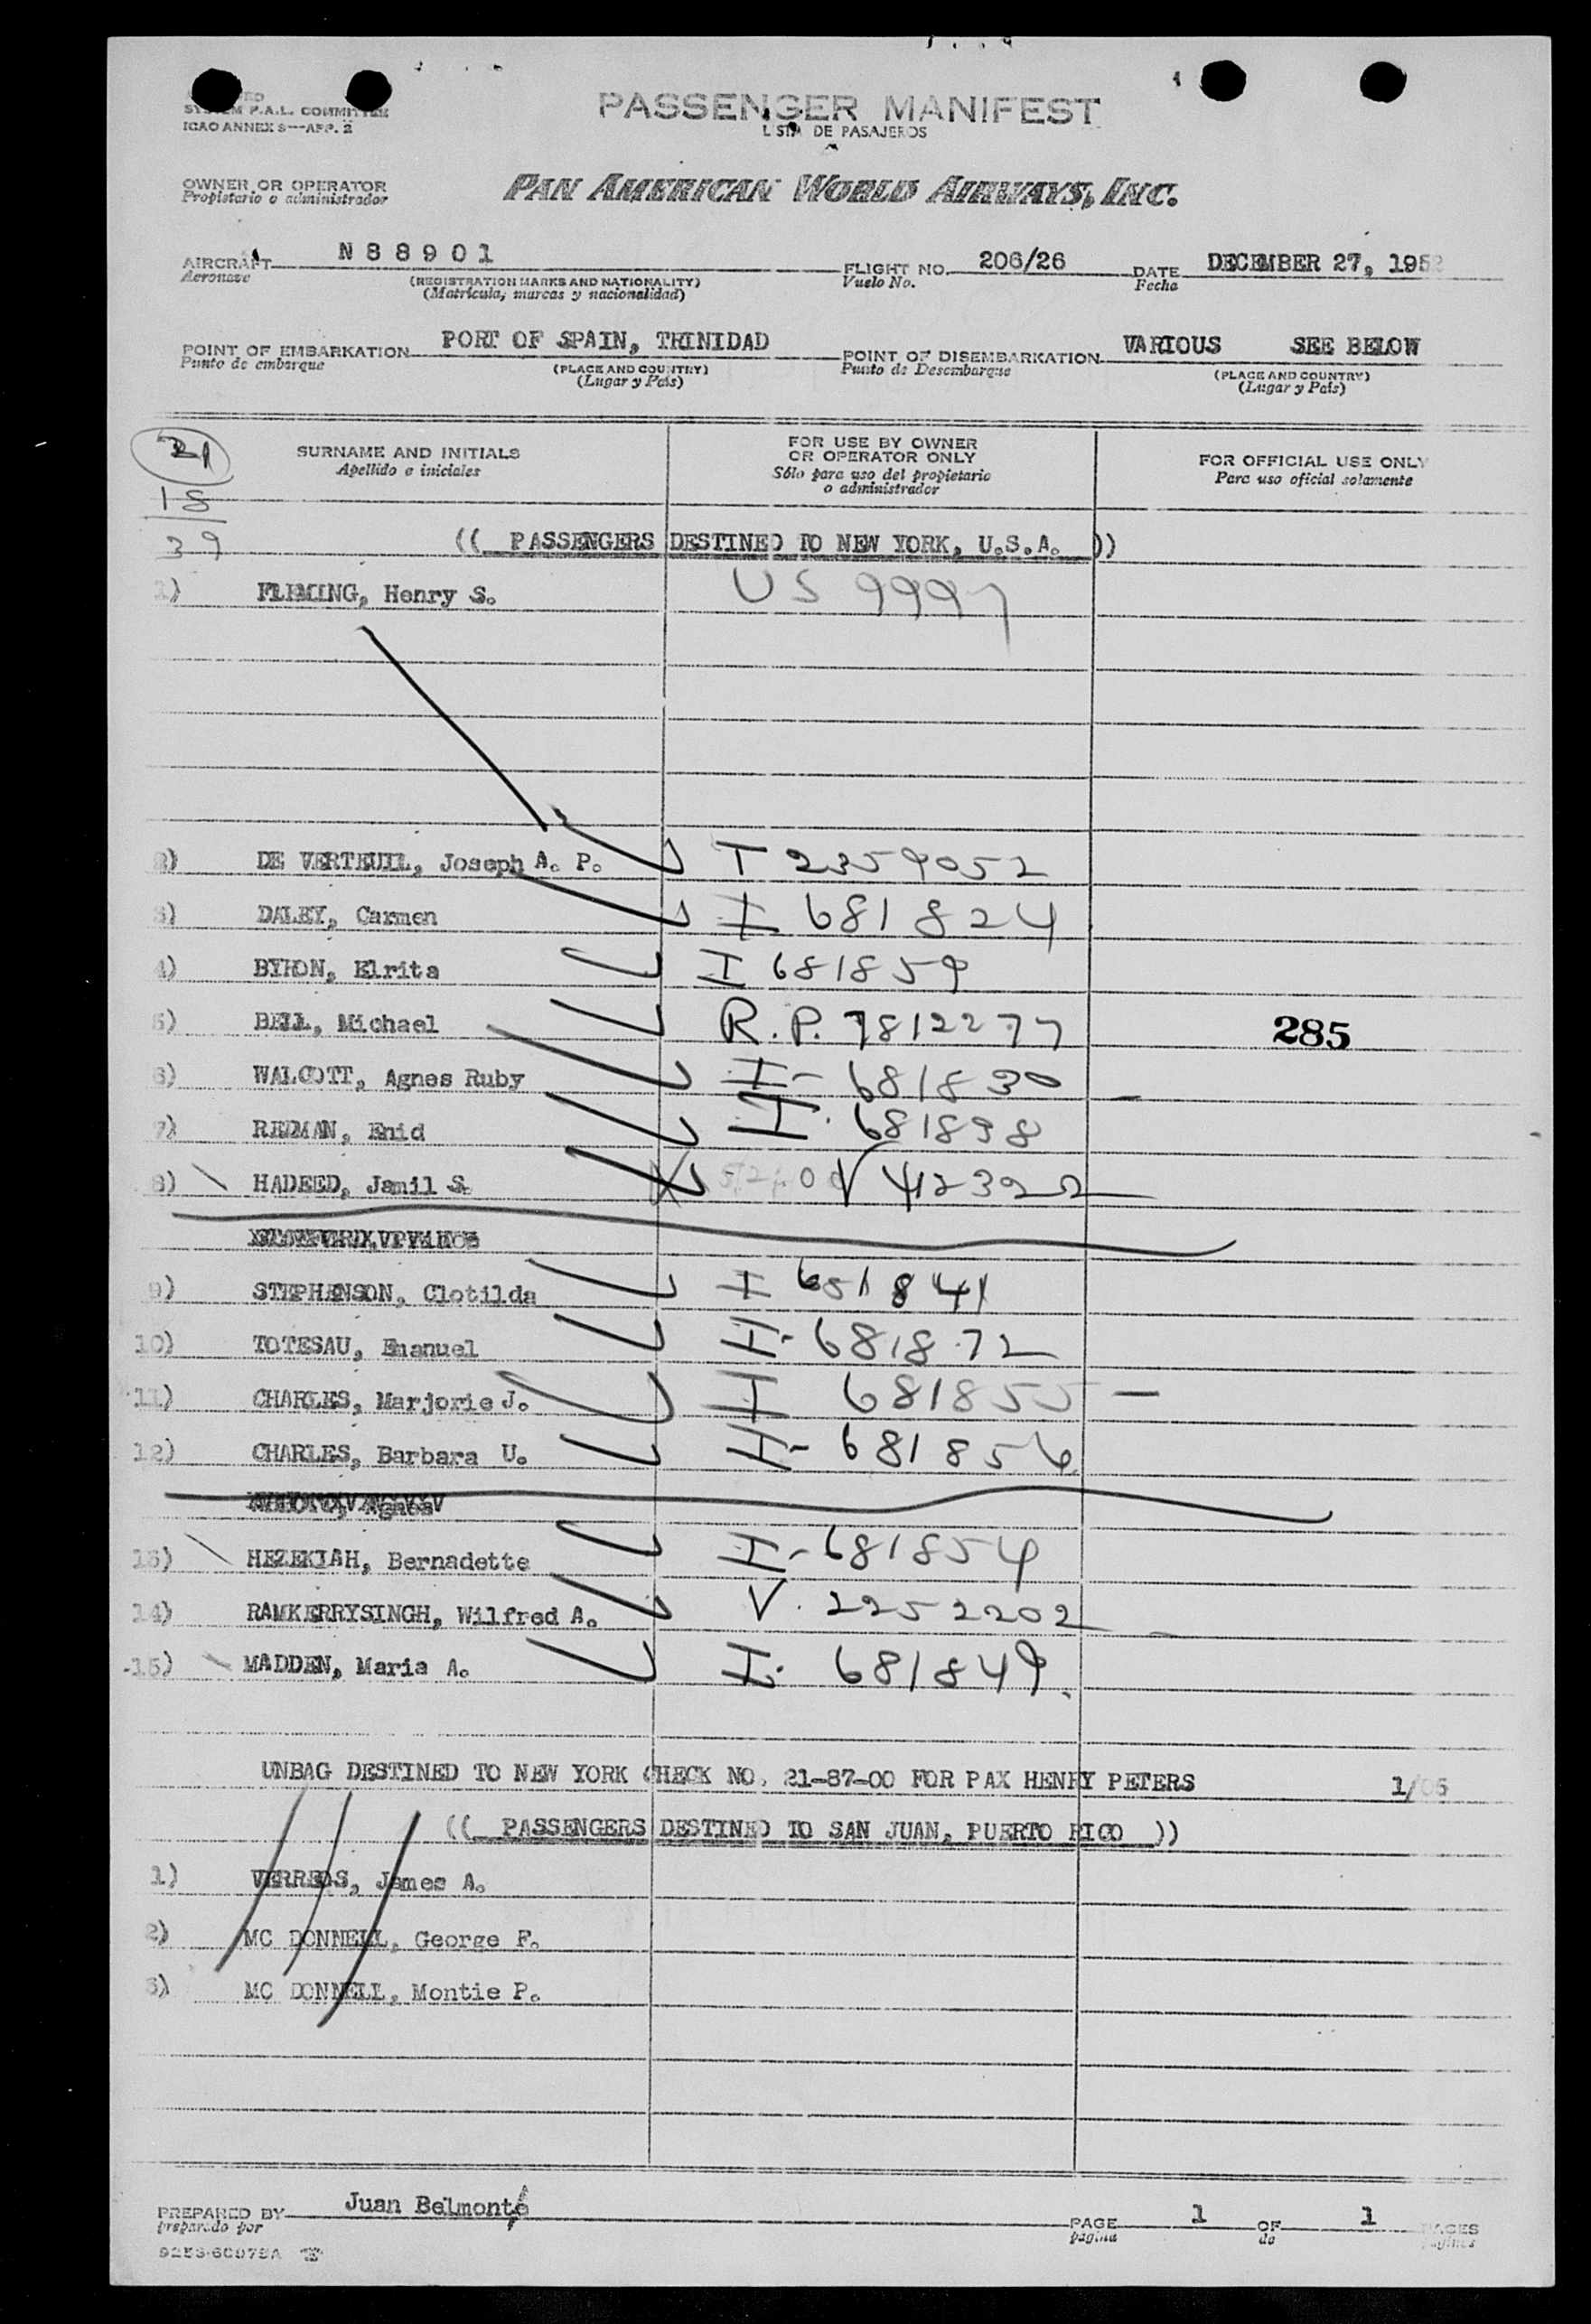 SYSTEM P.A.L. COMMITTEE
ICAO ANNEX 9—APP. 2
PASSENGER MANIFEST
LISTA DE PASAJEROS
OWNER OR OPERATOR
Propietario o administrador
PAN AMERICAN WORLD AIRWAYS, INC.
AIRCRAFT N88901 FLIGHT NO. 206/26 DATE DECEMBER 27, 195
Aeronave (REGISTRATION MARKS AND NATIONALITY) Vuelo No. Fecha
(Matrícula, marcas y nacionalidad)
POINT OF EMBARKATION PORT OF SPAIN, TRINIDAD POINT OF DISEMBARKATION VARIOUS SEE BELOW
Punto de embarque (PLACE AND COUNTRY) Punto de Desembarque (PLACE AND COUNTRY)
(Lugar y País) (Lugar y País)
21
18
39
SURNAME AND INITIALS
Apellido e iniciales
FOR USE BY OWNER
OR OPERATOR ONLY
Sólo para uso del propietario
o administrador
FOR OFFICIAL USE ONLY
Para uso oficial solamente
(( PASSENGERS DESTINED TO NEW YORK, U.S.A. ))
1) FLEMING, Henry S. US 9997
2) DE VERTEUIL, Joseph A. P. T 2359052
3) DALEY, Carmen I 681824
4) BYRON, Elrita I 681859
5) BELL, Michael R.P. 7812277 285
6) WALCOTT, Agnes Ruby I- 681830
7) REDMAN, Enid I. 681898
8) HADEED, Jamil S. V 412322
9) STEPHENSON, Clotilda I 681841
10) TOTESAU, Emanuel I- 681872
11) CHARLES, Marjorie J. I 681855 —
12) CHARLES, Barbara U. I- 681856
13) HEZEKIAH, Bernadette I-681854
14) RAMKERRYSINGH, Wilfred A. V. 2252202
15) MADDEN, Maria A. I. 681849.
UNBAG DESTINED TO NEW YORK CHECK NO. 21-87-00 FOR PAX HENRY PETERS 1/05
(( PASSENGERS DESTINED TO SAN JUAN, PUERTO RICO ))
1) James A.
2) MC DONNELL, George F.
3) MC DONNELL, Montie P.
PREPARED BY Juan Belmonte PAGE 1 OF 1 PAGES
preparado por página de páginas